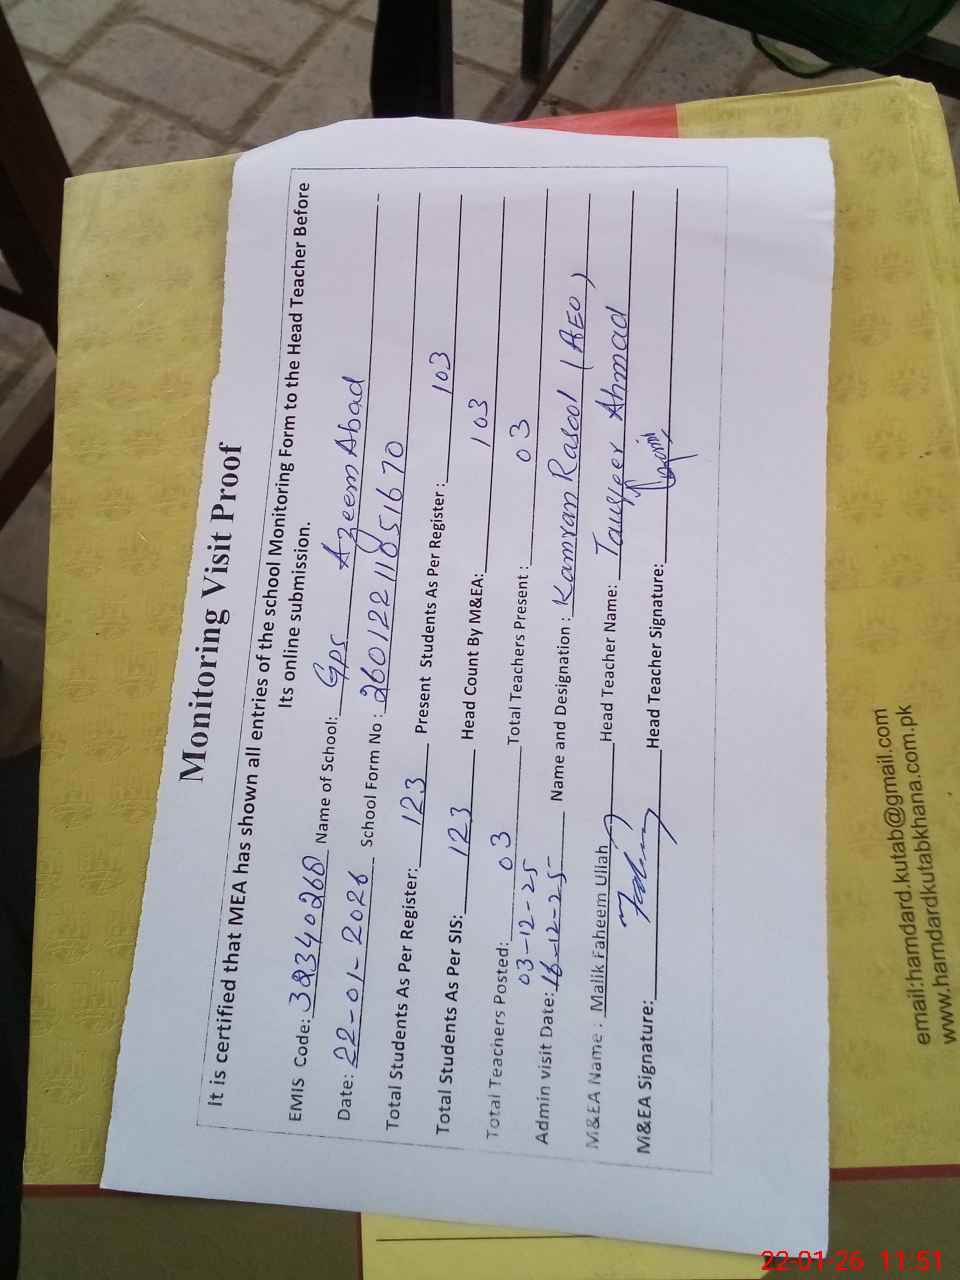 Monitoring Visit Proof
It is certified that MEA has shown all entries of the school Monitoring Form to the Head Teacher Before
Its online submission.
EMIS Code: 38340260 Name of School: Gps Azeem Abad
Date: 22-01-2026 School Form No: 260122110851670
Total Students As Per Register: 123 Present Students As Per Register: 103
Total Students As Per SIS: 123 Head Count By M&EA: 103
Total Teachers Posted: 03 Total Teachers Present: 03
03-12-25
Admin visit Date: 16-12-25- Name and Designation: Kamran Rasool (AEO)
M&EA Name: Malik Faheem Ullah Head Teacher Name: Tauqeer Ahmad
M&EA Signature: Head Teacher Signature:
email:hamdard.kutab@gmail.com
www.hamdardkutabkhana.com.pk
22-01-26 11:51